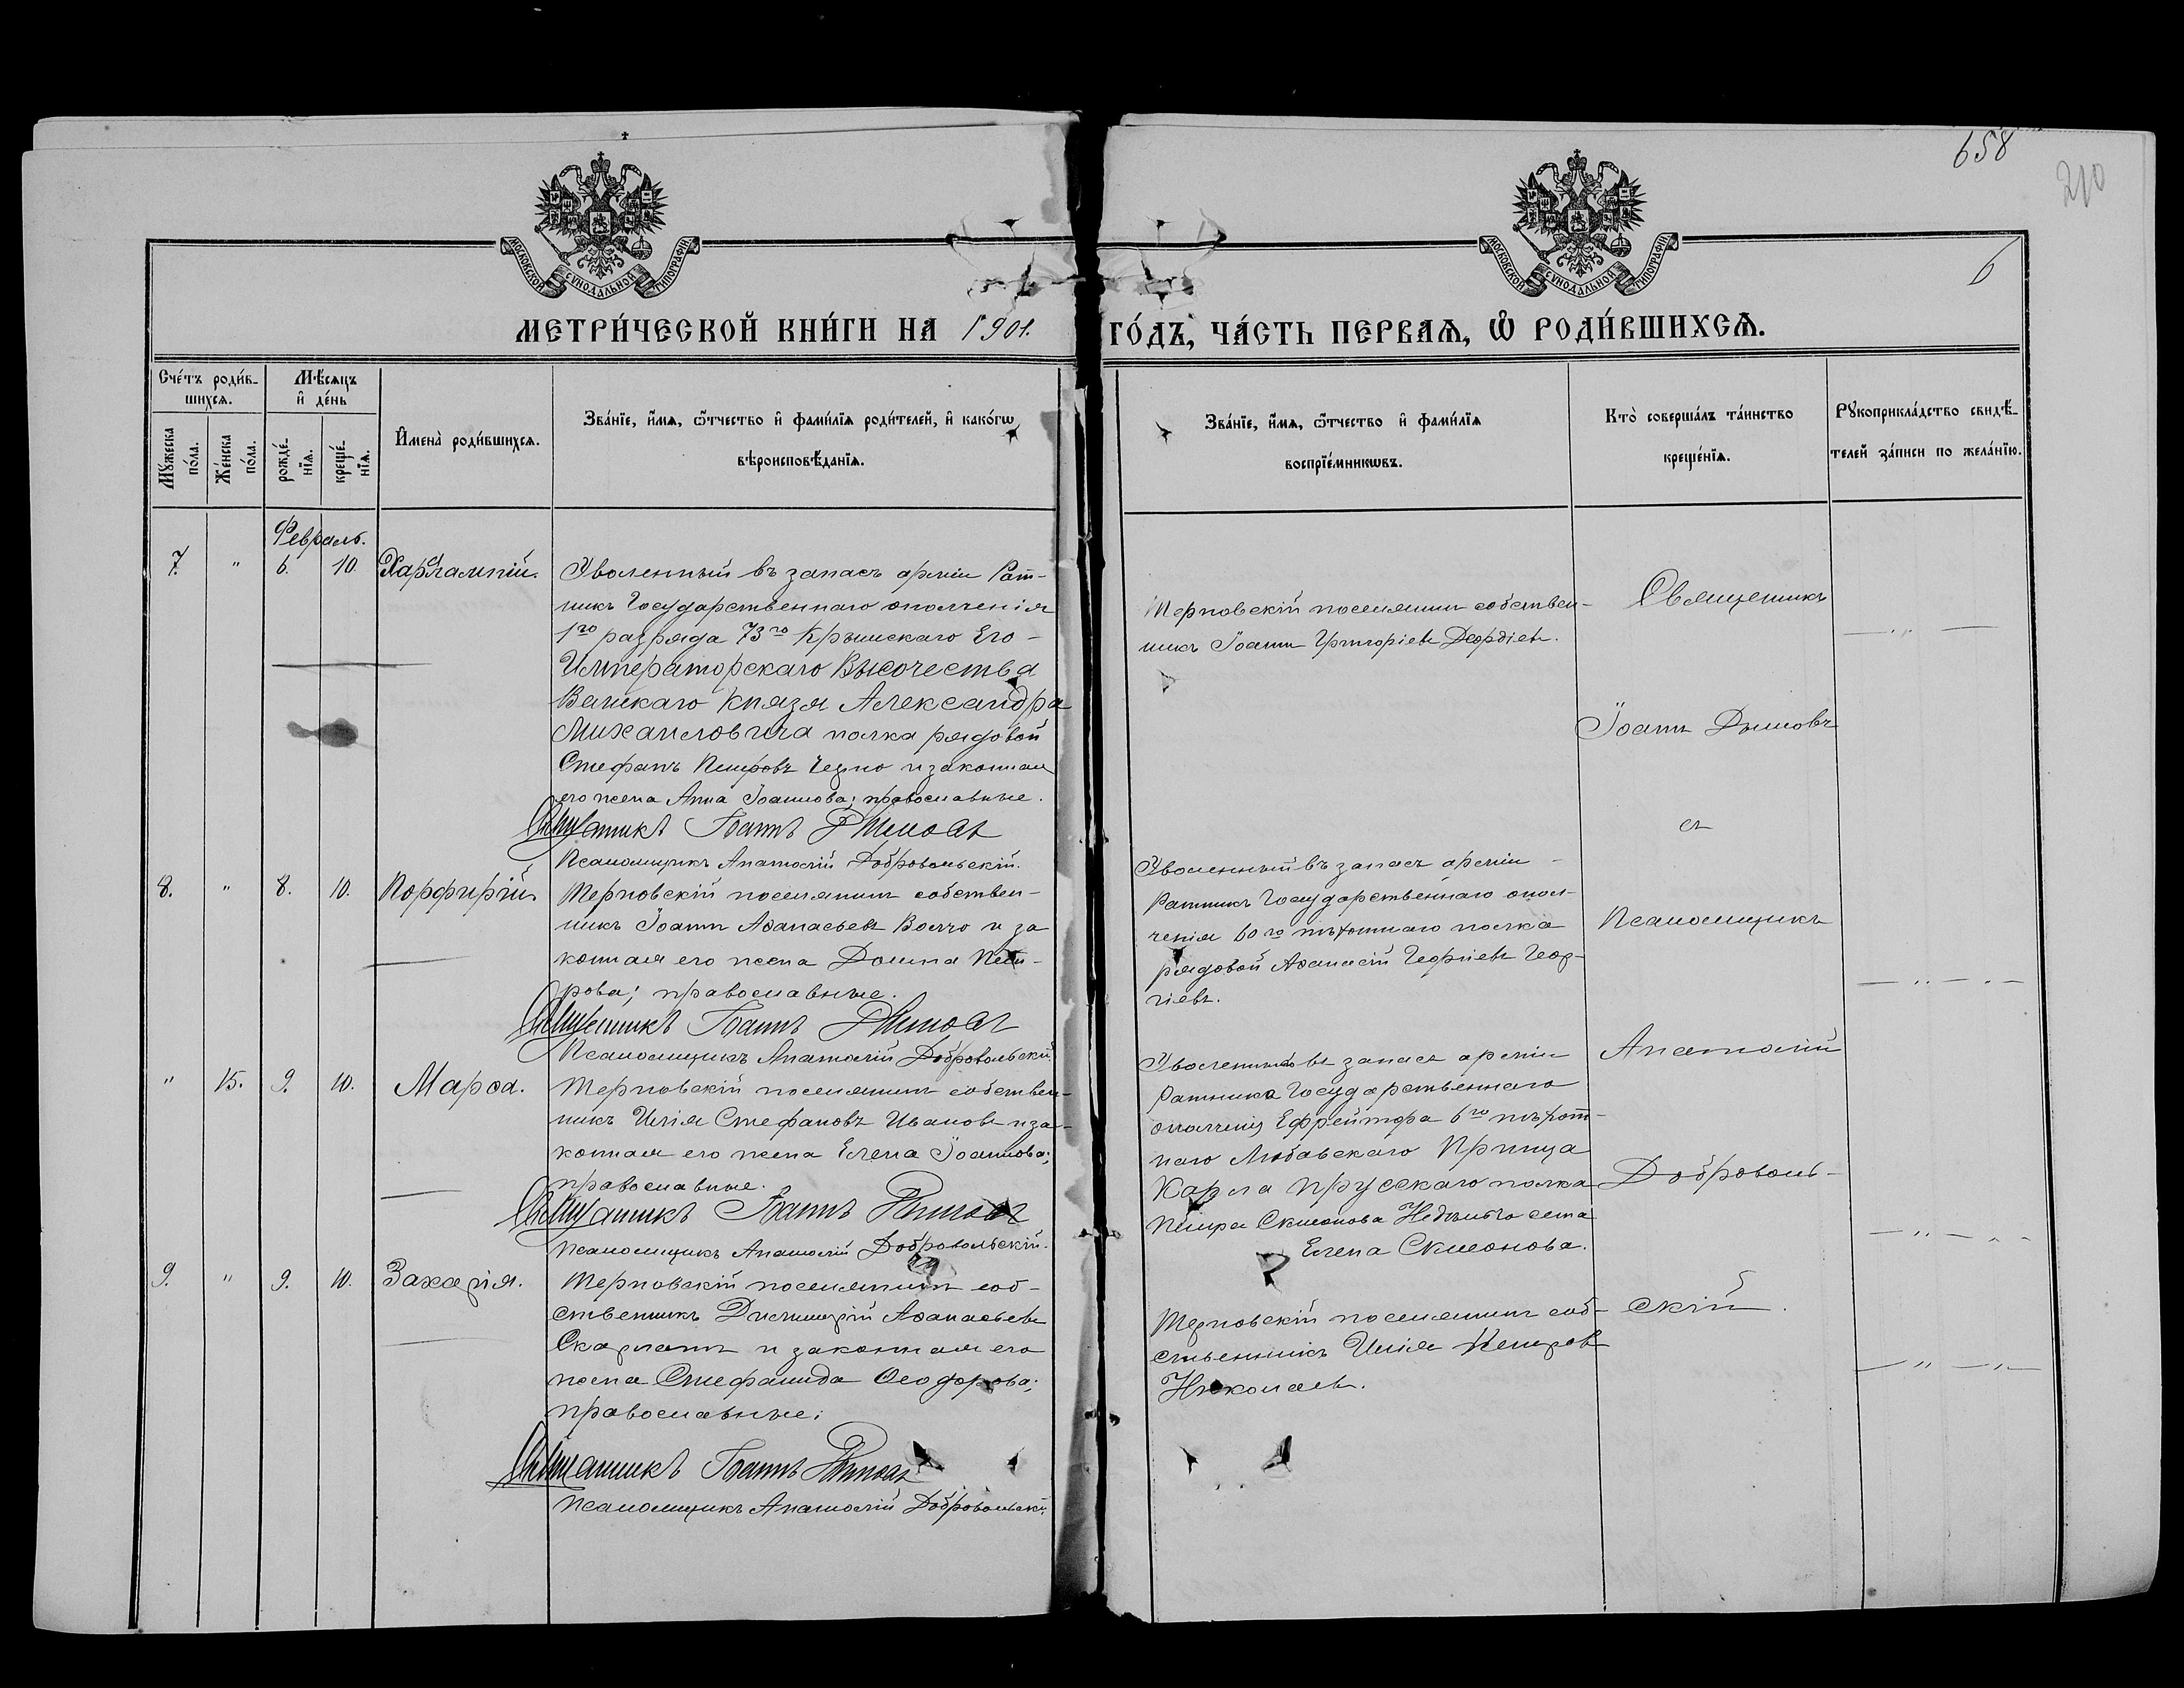 658
210
6
МОСКОВСКОЙ СУНОДАЛЬНОЙ ТИПОГРАФІИ
МОСКОВСКОЙ СУНОДАЛЬНОЙ ТИПОГРАФІИ
МЕТРИ́ЧЕСКОЙ КНИ́ГИ НА 1901. ГО́ДЪ, ЧА́СТЬ ПЕРВАѦ, Ѽ РОДИ́ВШИХСѦ.
Сче́тъ роди́в-
шихсѧ.
Мꙋ́жеска по́ла.
Же́нска по́ла.
Мѣ́сяцъ
и҆ де́нь
рожде́-нїѧ.
креще́-нїѧ.
И҆мена̀ роди́вшихсѧ.
Зва́нїе, и҆́мѧ, ѻ҆́тчество и҆ фами́лїѧ роди́телей, и҆ како́гѡ
вѣроисповѣ́данїѧ.
Зва́нїе, и҆́мѧ, ѻ҆́тчество и҆ фами́лїѧ
воспрїе́мникѡвъ.
Кто̀ соверша́лъ та́инство
креще́нїѧ.
Рꙋкоприкла́дство свидѣ́-
телей за́писи по жела́нїю.
Февраль.
7. " 6. 10. Харлампій.
Уволенный въ запасъ арміи Рат-
никъ Государственнаго ополченія
1го разряда 73го Крымскаго Его-
Императорскаго Высочества
Великаго Князя Александра
Михаиловича полка рядовой
Стефанъ Петровъ и законная
его жена Анна Іоаннова; православные.
Священникъ Іоаннъ Дымовъ
Псаломщикъ Анатолій Добровольскій.
Терновскій поселянинъ собствен-
никъ Іоаннъ Григоріевъ
8. " 8. 10. Порфирій
Терновскій поселянинъ собствен-
никъ Іоаннъ Аѳанасьевъ Волчо и за
конная его жена Домна Пет-
рова; православные.
Священникъ Іоаннъ Дымовъ
Псаломщикъ Анатолій Добровольскій.
Уволенный въ запасъ арміи
Ратникъ Государственнаго опол-
ченія 60го пѣхотнаго полка
рядовой Аѳанасій Георгіевъ Геор-
гіевъ.
" 15. 9. 10. Марѳа.
Терновскій поселянинъ собствен-
никъ Илія Стефановъ Ивановъ и за-
конная его жена Елена Іоаннова;
православные.
Священникъ Іоаннъ Дымовъ
Псаломщикъ Анатолій Добровольскій.
въ запасъ арміи
Ратника Государственнаго
ополченія Ефрейтора 6го пѣхот-
наго Либавскаго Принца
Карла прусскаго полка
Петра
Елена
9. " 9. 10. Захарія.
Терновскій поселянинъ соб-
ственникъ Димитрій Аѳанасьевъ
Скарлатъ и законная его
жена Стефанида Ѳеодорова;
православные;
Священникъ Іоаннъ Дымовъ
Псаломщикъ Анатолій Добровольскій.
Терновскій поселянинъ соб-
ственникъ Илія Петровъ
Николаевъ.
Священникъ
Іоаннъ Дымовъ
съ
Псаломщикъ
Анатолій
Доброволь-
скій.